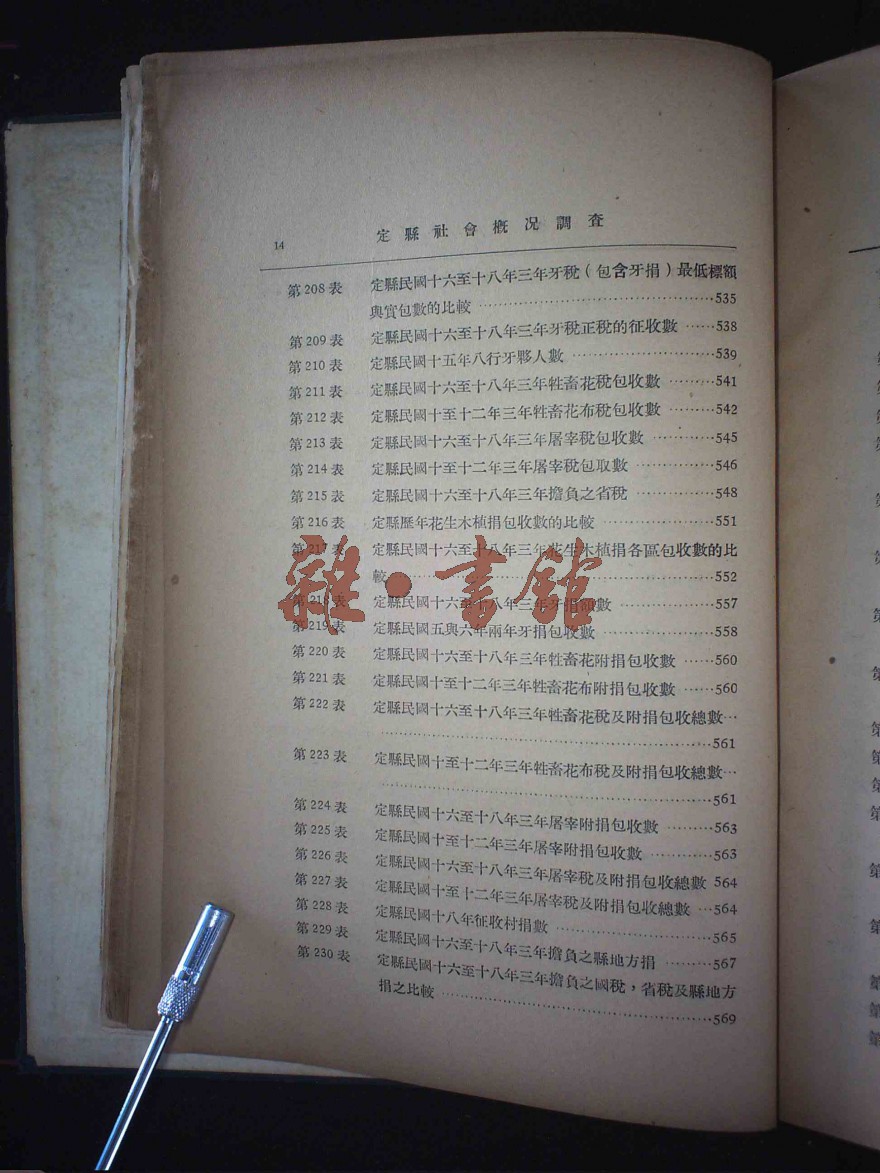 14
定縣社會概况調查
第208表 定縣民國十六至十八年三年牙稅(包含牙捐)最低標額
與實包數的比較……535
第209表 定縣民國十六至十八年三年牙稅正稅的征收數……538
第210表 定縣民國十五年八行牙夥人數……539
第211表 定縣民國十六至十八年三年牲畜花稅包收數……541
第212表 定縣民國十至十二年三年牲畜花布稅包收數……542
第213表 定縣民國十六至十八年三年屠宰稅包收數……545
第214表 定縣民國十至十二年三年屠宰稅包取數……546
第215表 定縣民國十六至十八年三年擔負之省稅……548
第216表 定縣歷年花生木植捐包收數的比較……551
第217表 定縣民國十六至十八年三年花生木植捐各區包收數的比
較……552
第218表 定縣民國十六至十八年三年牙捐額數……557
第219表 定縣民國五與六年兩年牙捐包收數……558
第220表 定縣民國十六至十八年三年牲畜花附捐包收數……560
第221表 定縣民國十至十二年三年牲畜花布附捐包收數……560
第222表 定縣民國十六至十八年三年牲畜花稅及附捐包收總數…
……561
第223表 定縣民國十至十二年三年牲畜花布稅及附捐包收總數…
……561
第224表 定縣民國十六至十八年三年屠宰附捐包收數……563
第225表 定縣民國十至十二年三年屠宰附捐包收數……563
第226表 定縣民國十六至十八年三年屠宰稅及附捐包收總數 564
第227表 定縣民國十至十二年三年屠宰稅及附捐包收總數…564
第228表 定縣民國十八年征收村捐數……565
第229表 定縣民國十六至十八年三年擔負之縣地方捐……567
第230表 定縣民國十六至十八年三年擔負之國稅,省稅及縣地方
捐之比較……569
雜·書館